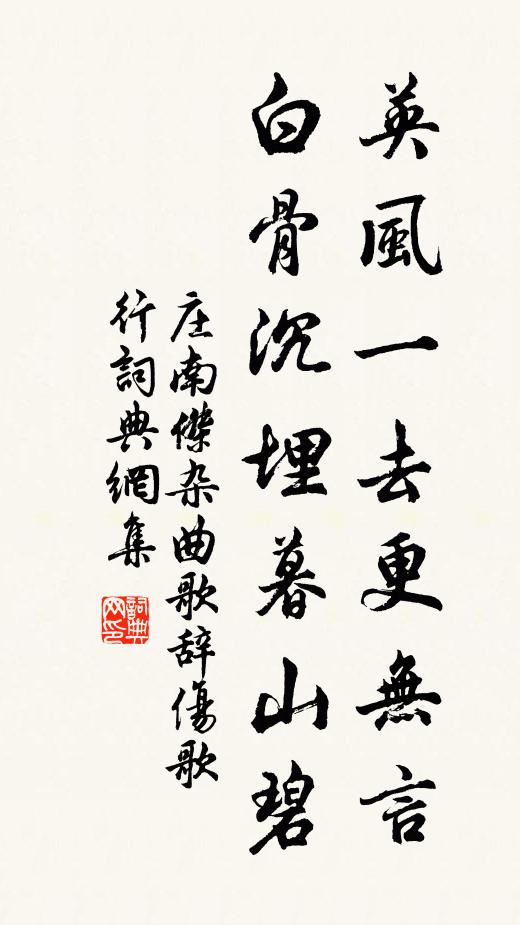 英風一去更無言
白骨沉埋暮山碧
庄南傑杂曲歌辞傷歌
行詞典網集
詞典
网印